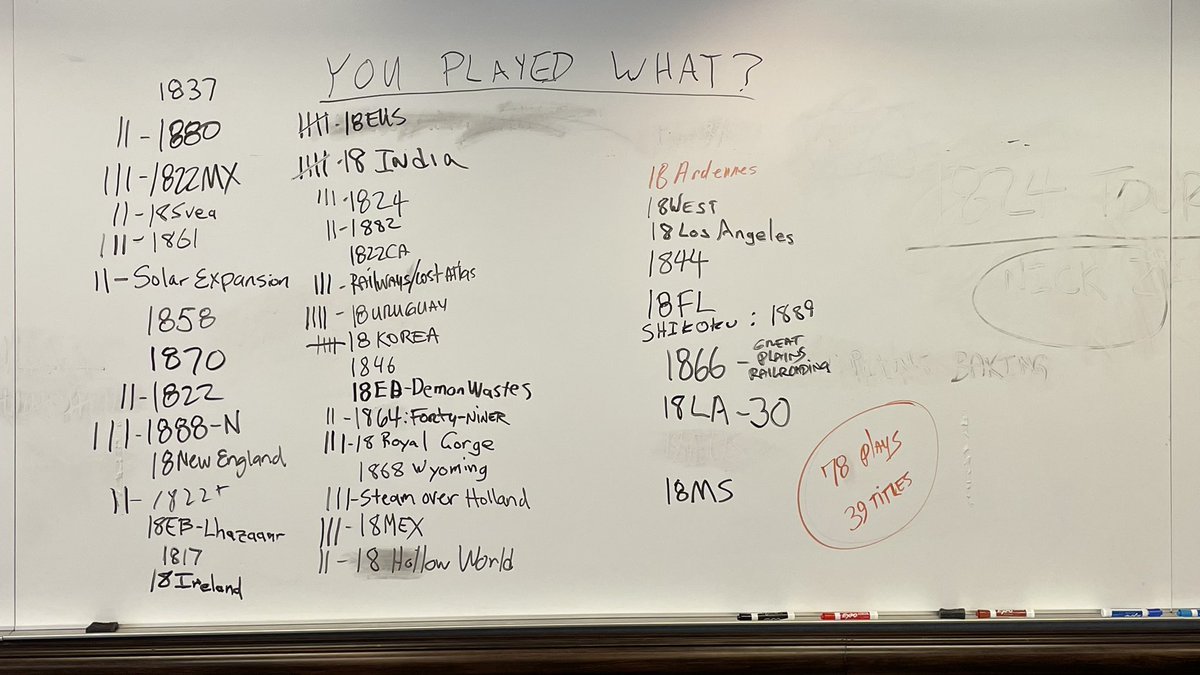 YOU PLAYED WHAT?
1837
||-1880
|||-1822MX
||-18Svea
|||-1861
||-Solar Expansion
1858
1870
||-1822
|||-1888-N
18 New England
||-1822+
18EB-Lhazaarr
1817
18 Ireland
卌-18EUS
卌-18 India
|||-1824
||-1882
1822CA
|||-RAilwAys/Lost Atlas
||||-18URUGUAY
卌 18 KOREA
1846
18EB-Demon Wastes
||-1864: Forty-Niner
|||-18 Royal Gorge
1868 Wyoming
|||-Steam over Holland
|||-18MEX
||-18 Hollow World
18 Ardennes
18WEST
18 Los Angeles
1844
18FL
SHIKOKU: 1889
1866 - GREAT PLAINS RAILROADING
18LA-30
18MS
78 PLAYS
39 TITLES
1824 TOUR
NICK
BAKING